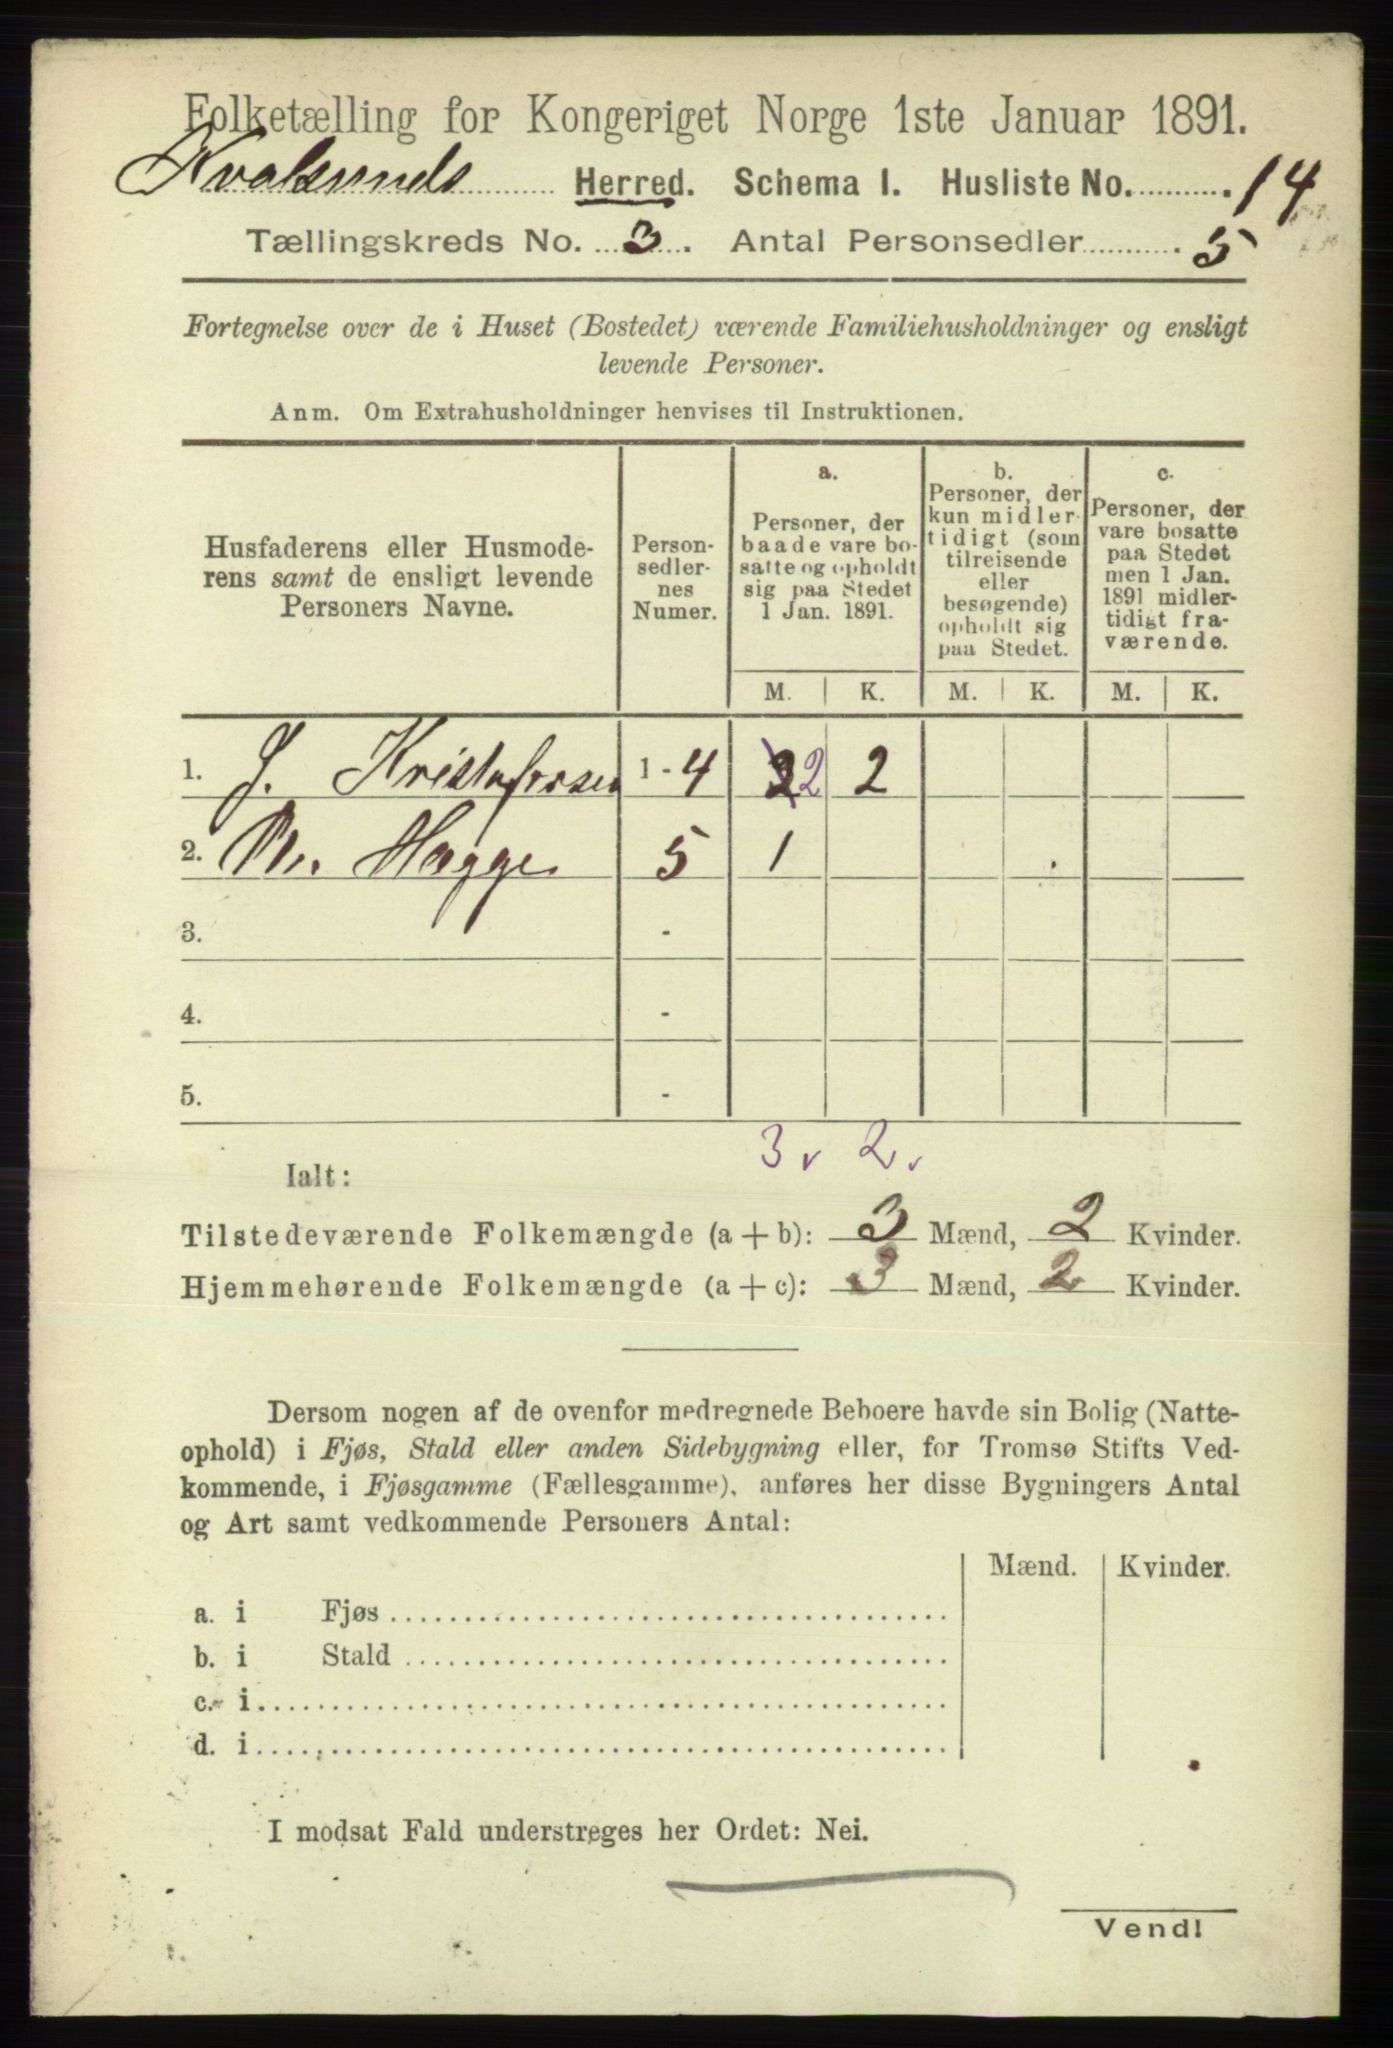 Folketælling for Kongeriget Norge 1ste Januar 1891.
Kvalsunds Herred. Schema I. Husliste No. 14
Tællingskreds No. 3. Antal Personsedler 5
Fortegnelse over de i Huset (Bostedet) værende Familiehusholdninger og ensligt
levende Personer.
Anm. Om Extrahusholdninger henvises til Instruktionen.
Husfaderens eller Husmode-
rens samt de ensligt levende
Personers Navne.
Person-
sedler-
nes
Numer.
a.
Personer, der
baade vare bo-
satte og opholdt
sig paa Stedet
1 Jan. 1891.
b.
Personer, der
kun midler-
tidigt (som
tilreisende
eller
besøgende)
opholdt sig
paa Stedet.
c.
Personer, der
vare bosatte
paa Stedet
men 1 Jan.
1891 midler-
tidigt fra-
værende.
M. K. M. K. M. K.
1. J. Kristofersen 1-4 2 2
2. Hagge 5 1
3. -
4. -
5. -
3 2
Ialt:
Tilstedeværende Folkemængde (a + b): 3 Mænd, 2 Kvinder.
Hjemmehørende Folkemængde (a + c): 3 Mænd, 2 Kvinder.
Dersom nogen af de ovenfor medregnede Beboere havde sin Bolig (Natte-
ophold) i Fjøs, Stald eller anden Sidebygning eller, for Tromsø Stifts Ved-
kommende, i Fjøsgamme (Fællesgamme), anføres her disse Bygningers Antal
og Art samt vedkommende Personers Antal:
Mænd. Kvinder.
a. i Fjøs
b. i Stald
c. i
d. i
I modsat Fald understreges her Ordet: Nei.
Vend!